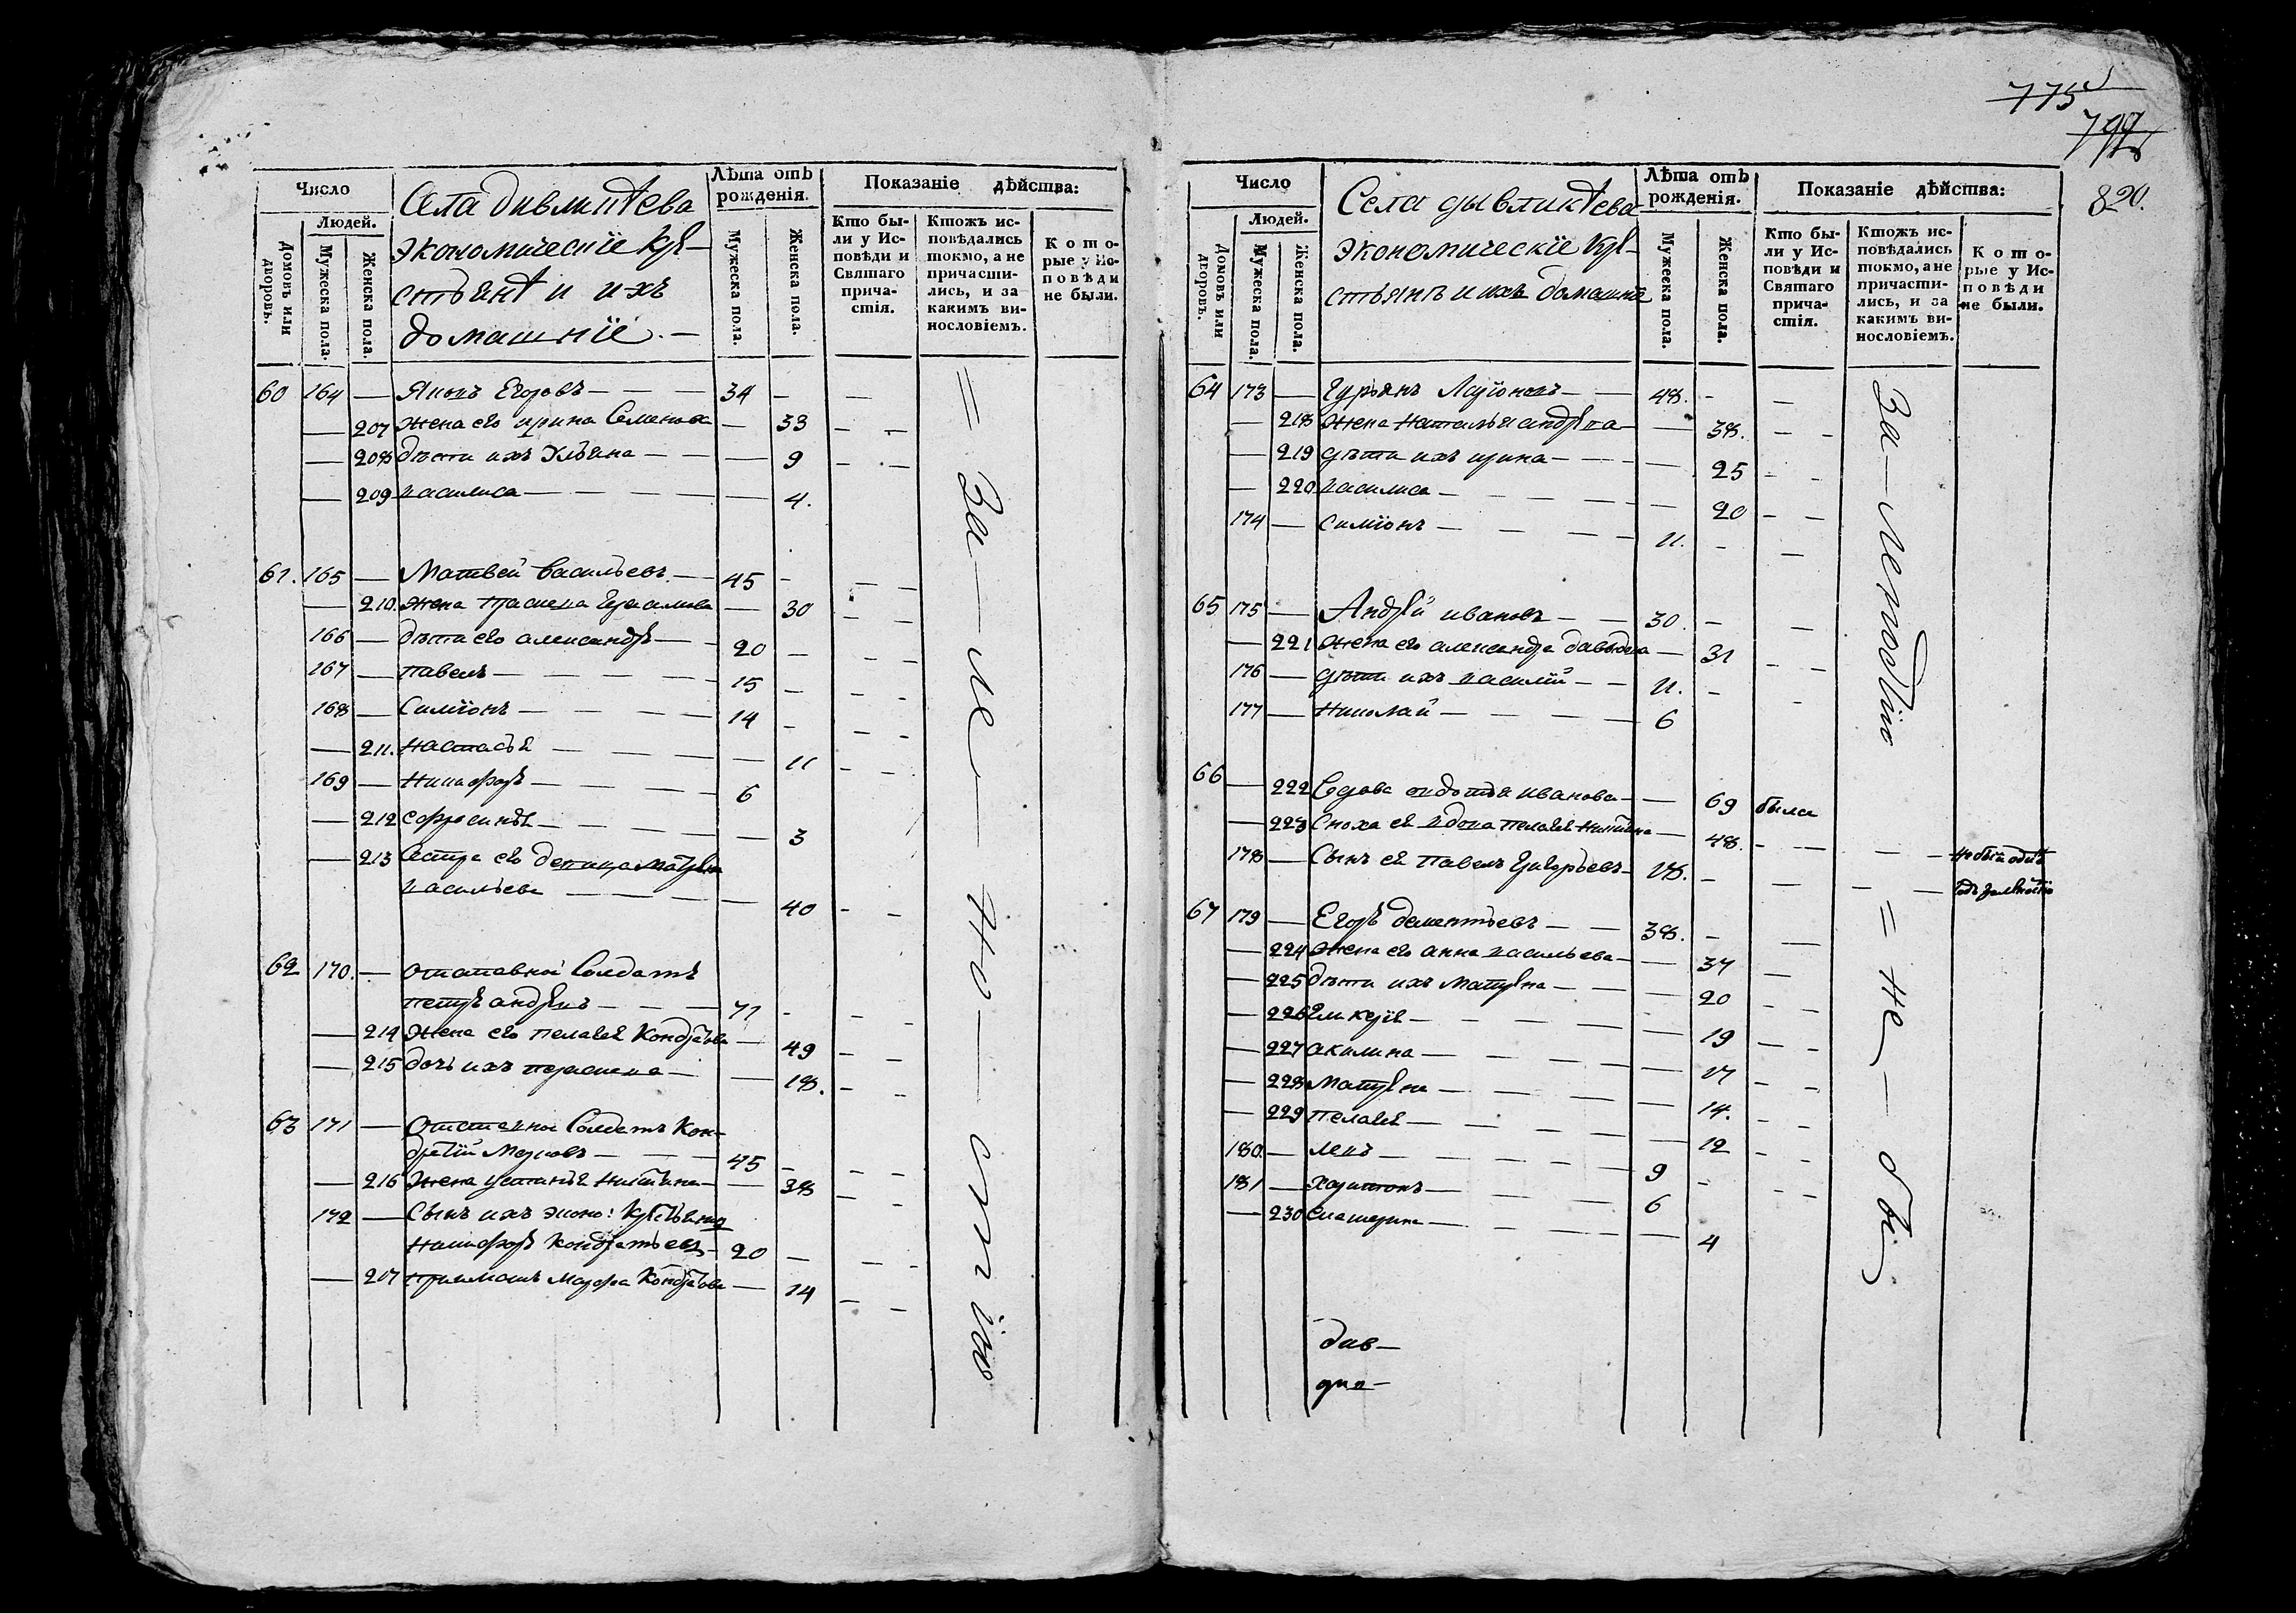 Число
Людей.
Домовъ или дворовъ.
Мужеска пола.
Женска пола.
Села
экономическїе кре-
стьянѣ и ихъ
домашнїе. —
Лѣта отъ рожденія.
Мужеска пола.
Женска пола.
Показаніе дѣйства:
Кто бы-
ли у Ис-
повѣди и
Святаго
прича-
стія.
Ктожъ ис-
повѣдались
токмо, а не
причасти-
лись, и за
какимъ ви-
нословіемъ.
Кото-
рые у Ис-
повѣди
не были.
60 164 — Яковъ Егоровъ — 34 —
— 207 жена его ирина Семенова — 33
— 208 дѣти ихъ Ульяна — 9
— 209 василиса — 4.
61. 165 — Матвей васильевъ — 45 —
— 210. жена — 30
166 — дѣти его александръ — 20 —
167 — павелъ — 15 —
168 — Симїонъ — 14 —
— 211. настасья — 11
169 — Никифоръ — 6
— 212 — 3
— 213 Сестра его девица Матрена
васильева — 40
62 170. — отставной Солдатъ
петръ андревъ — 71 —
— 214 жена его пелагея Кондратова — 49
— 215 дочь ихъ — 18.
63 171 — Отставной Солдатъ Кон-
дратїй Марковъ — 45 —
— 216 жена устинья Никитина — 38
172 — Сынъ ихъ эконо:
Никифоръ Кондратьевъ — 20 —
— 217 марфа Кондратова — 14
= За — не — — ию
775
799
820.
Число
Людей.
Домовъ или дворовъ.
Мужеска пола.
Женска пола.
Села
экономическїе кре-
стьянъ и ихъ домашнїе
Лѣта отъ рожденія.
Мужеска пола.
Женска пола.
Показаніе дѣйства:
Кто бы-
ли у Ис-
повѣди и
Святаго
прича-
стія.
Ктожъ ис-
повѣдались
токмо, а не
причасти-
лись, и за
какимъ ви-
нословіемъ.
Кото-
рые у Ис-
повѣди
не были.
64 173 — Гурьянъ Ларїоновъ — 48. —
— 218 жена наталья андрева — 38.
— 219 дѣти ихъ ирина — 25
— 220 василиса — 20
174 — симїонъ — 11. —
65 175 — Андрей ивановъ — 30. —
— 221 жена его александра давыдова — 31
176 — дѣти ихъ василїй — 11. —
177 — Николай — 6
66 — 222 вдова авдотья иванова — 69 была
— 223 Сноха ея вдова пелагея никитина — 48.
178 — Сынъ ея павелъ Григорьевъ — 18. —
67 179 — Егоръ дементьевъ — 38. —
— 224 жена его анна васильева — 37
— 225 дѣти ихъ матрена — 20
— 226 — 19
— 227 акилина — 17
— 228 матрена — 14.
— 229 пелагея — 12
180. — левъ — 9 —
181 — харитонъ — 6
— 230 екатерина — 4
За —
= не — бы